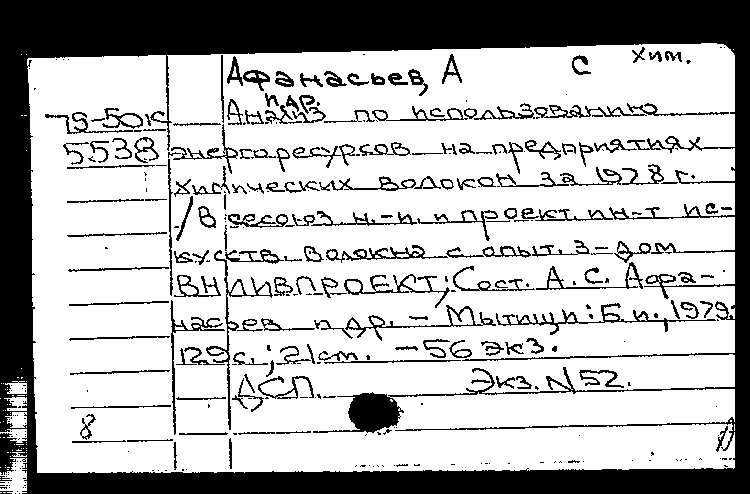 Афанасьев, А С Хим.
и др.
75-50к Анализ по использованию
5538 энергоресурсов на предприятиях
химических волокон за 1978 г.
/ Всесоюз. н.-и. и проект. ин-т ис-
кусств. волокна с опыт. з-дом
ВНИИВПРОЕКТ; Сост. А.С. Афа-
насьев и др. - Мытищи: Б.и., 1979.
129 с.; 21 ст. - 56 экз.
ДСП. Экз. N 52.
8